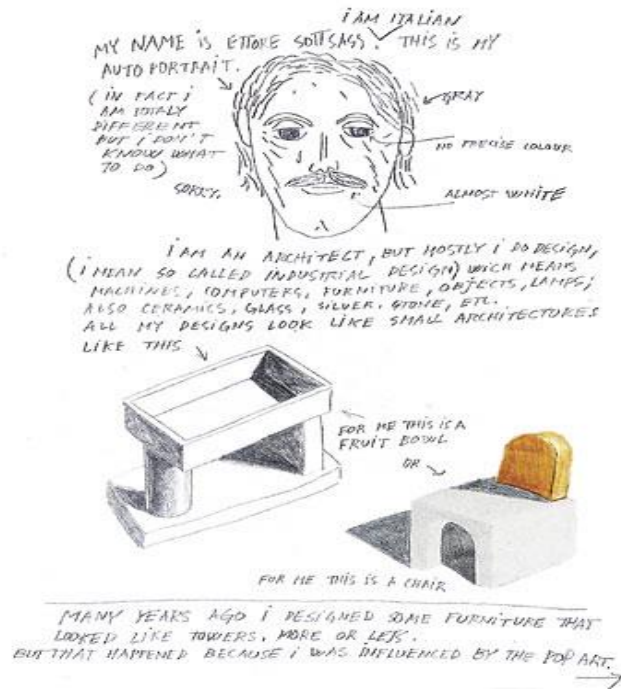 I AM ITALIAN
MY NAME IS ETTORE SOTTSASS. THIS IS MY
AUTO PORTRAIT.
(IN FACT I
AM TOTALY
DIFFERENT
BUT I DON'T
KNOW WHAT
TO DO)
SORRY.
GRAY
NO PRECISE COLOUR
ALMOST WHITE
I AM AN ARCHITECT, BUT MOSTLY I DO DESIGN,
(I MEAN SO CALLED INDUSTRIAL DESIGN) WICH MEANS
MACHINES, COMPUTERS, FURNITURE, OBJECTS, LAMPS;
ALSO CERAMICS, GLASS, SILVER, STONE, ETC.
ALL MY DESIGNS LOOK LIKE SMALL ARCHITECTURES
LIKE THIS
FOR ME THIS IS A
FRUIT BOWL
OR
FOR ME THIS IS A CHAIR
MANY YEARS AGO I DESIGNED SOME FURNITURE THAT
LOOKED LIKE TOWERS, MORE OR LESS.
BUT THAT HAPPENED BECAUSE I WAS INFLUENCED BY THE POP ART.